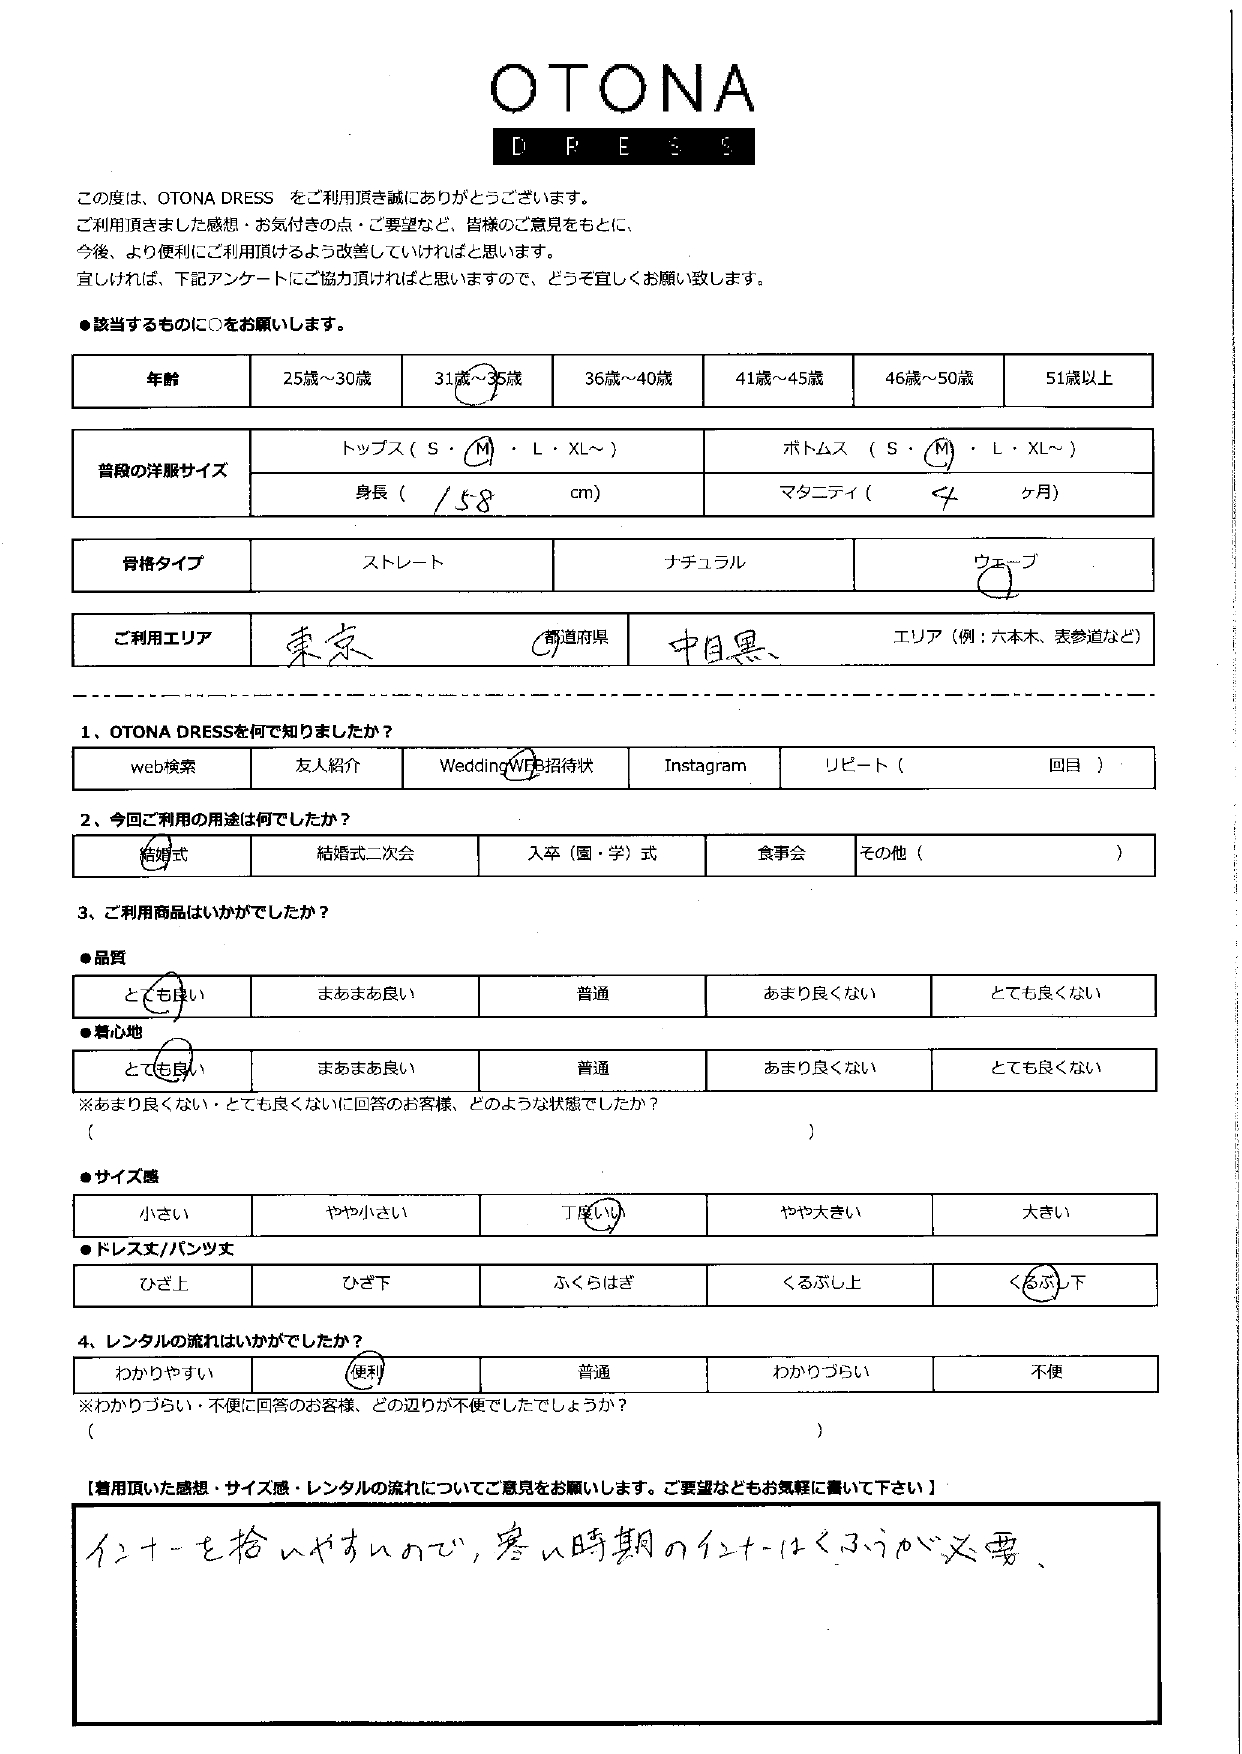 OTONA
DRESS
この度は、OTONA DRESS をご利用頂き誠にありがとうございます。
ご利用頂きました感想・お気付きの点・ご要望など、皆様のご意見をもとに、
今後、より便利にご利用頂けるよう改善していければと思います。
宜しければ、下記アンケートにご協力頂ければと思いますので、どうぞ宜しくお願い致します。
●該当するものに○をお願いします。
年齢 25歳～30歳 31歳～35歳 36歳～40歳 41歳～45歳 46歳～50歳 51歳以上
普段の洋服サイズ トップス( S ・ M ・ L ・ XL～ ) ボトムス ( S ・ M ・ L ・ XL～ )
身長 ( 158 cm) マタニティ ( 4 ヶ月)
骨格タイプ ストレート ナチュラル ウェーブ
ご利用エリア 東京 都道府県 中目黒 エリア（例：六本木、表参道など）
1、OTONA DRESSを何で知りましたか？
web検索 友人紹介 WeddingWEB招待状 Instagram リピート（ 回目 ）
2、今回ご利用の用途は何でしたか？
結婚式 結婚式二次会 入卒（園・学）式 食事会 その他（ ）
3、ご利用商品はいかがでしたか？
●品質
とても良い まあまあ良い 普通 あまり良くない とても良くない
●着心地
とても良い まあまあ良い 普通 あまり良くない とても良くない
※あまり良くない・とても良くないに回答のお客様、どのような状態でしたか？
( )
●サイズ感
小さい やや小さい 丁度いい やや大きい 大きい
●ドレス丈/パンツ丈
ひざ上 ひざ下 ふくらはぎ くるぶし上 くるぶし下
4、レンタルの流れはいかがでしたか？
わかりやすい 便利 普通 わかりづらい 不便
※わかりづらい・不便に回答のお客様、どの辺りが不便でしたでしょうか？
( )
【着用頂いた感想・サイズ感・レンタルの流れについてご意見をお願いします。ご要望などもお気軽に書いて下さい】
インナーを拾いやすいので、寒い時期のインナーはくふうが必要、